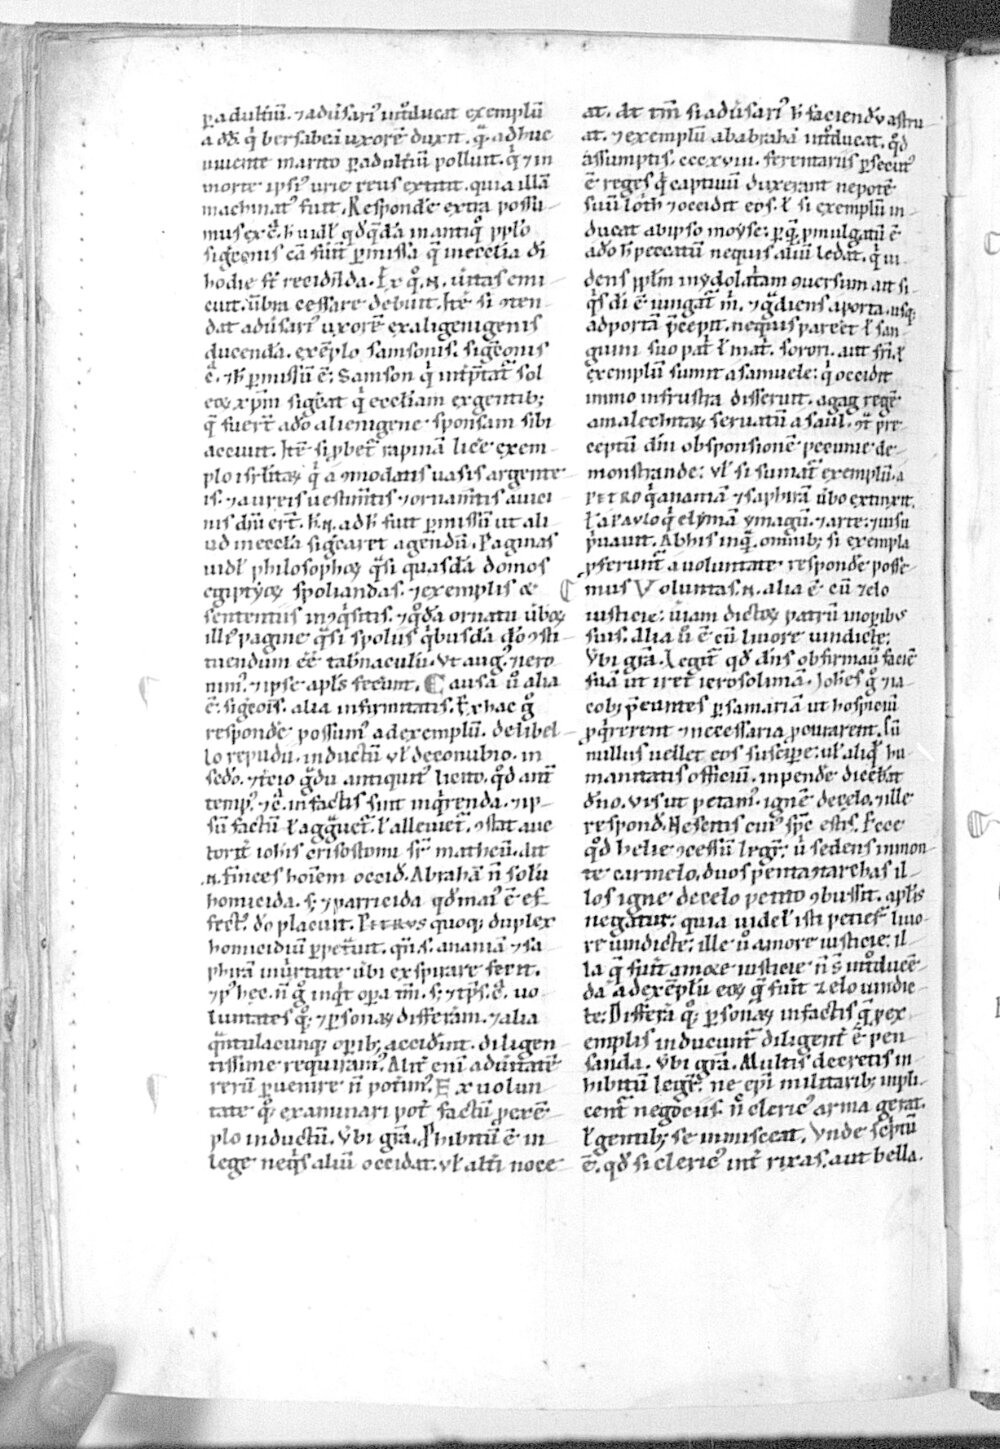 p adultiũ. ⁊ adũsariꝰ int̃ducat exemplũ
a dd̃. q̇ bersabeã uxorẽ duxit. q̃ adhuc
uiuente marito p adultiũ polluit. q̇ ⁊ in
morte ipsiꝰ urie reus extitit. quia illã
machinatꝰ fuit. Respondẽ extra possu
mus
sigẽonis cã fuit̃ pmissa q̃ in ecclia di
hodie st̃ recidñda.
cuit. ũbra cessare debuit. Itẽ si ↄten
dat adũsariꝰ uxorẽ ex aligenigenis
ducenda. exẽplo samsonis. sigẽonis
ẽ. ⁊ h̃ pmissũ ẽ: Samson q̇ int̃ptat̃ sol
eoꝝ xp̃m sigc̃at q̇ eccl̃iam ex gentibꝫ
q̃ fuerт̃ ad̃o alienigene sponsam sibi
acciuit. Itẽ si pbet̃ rapinã licẽ exem
plo isrl̃itaꝝ q̇ a ↄmodatis uasis argente
is. ⁊ aureis uestim̃tis ⁊ ornam̃tis
ad h̃ fuit pmissũ ut ali
ud in eccl̃a sigc̃aret agendũ. Paginas
uidl̃ philosophoꝝ q̃si quasdã domos
egiptyoꝝ spoliandas. ⁊ exemplis &
sententiis inq̇sitis. ⁊ q̊dã ornatu ũboꝝ
illiꝰ pagine q̃si spoliis q̇busdã dõ ↄsti
tuendum eẽ tab̃naculũ. Vt augꝰ ⁊ iero
nimꝰ. ⁊ ipse apl̃s fecũnt. Causa ũ alia
ẽ. sigẽois. alia infirmitatis. Ex hac g̊
respondẽ possumꝰ ad exemplũ. de libel
lo repudii. inductũ ul̃ de conubio. in
sedo. ⁊ tcio g̃du antiquitꝰ licito. q̊d ant̃
tempꝰ. ⁊c̃. in factis sunt inq̇renda. ⁊ ip
sũ factũ l̃ agg̃uet̃. l̃ alleuiet̃. ↄstat auc
torit̃ ioh̃is crisostomi sr̃ matheũ. ait
.n̄. Finees hoĩem occid̃. Abrahã ñ solũ
homicida. sꝫ ⁊ parricida qd̃ maiꝰ ẽ ef
fectꝰ. dõ placuit. PETRVS quoqꝫ duplex
homicidiũ ppet̃uit. qñ .s. ananiã ⁊ sa
phirã in ũtute ũbi expirare fecit.
ñ g̊ inq̇t opa tm̃. sꝫ ⁊ tp̃s. c̃. uo
luntates qꝫ. ⁊ psonaꝝ differam. ⁊ alia
q̃ntulacunqꝫ opibꝫ accid̃int. diligen
tissime requiramꝰ. Alit̃ enĩ ad ũitatẽ
rerũ puenire ñ potimꝰ. Ex uolun
tate qꝫ examinari pot̃ factũ p exẽ
plo inductũ. Vbi gr̃a. Phibitũ ẽ in
lege neq̇s aliũ occidat. ul̃ alt̃i noce
at. At tm̃ si adũsariꝰ h̃ faciendũ astru
at. ⁊ exemplũ ab abrahã int̃ducat. q̊d
assumptis. cccxviii. ferentariis psecutꝰ
ẽ reges q̇ captiuũ duxerant nepotẽ
suũ loth ⁊ occidit eos. l̃ si exemplũ in
ducat ab ipso moyse: p quẽ pmulgatũ ẽ
ad̃o h̃ peccatũ nequis aliũ ledat. q̇ ui
dens ppl̃m in ydolat̃am ↄuersum ait si
q̇s di ẽ iungat̃ m̃. ⁊ g̃diens a porta usqꝫ
ad portã p̃cepit. nequis parcet l̃ san
guini suo pat̃ l̃ mat̃. sorori. aut fr̃i. l̃
exemplũ sumit a samuele: q̇ occidit
immo in frustra disseruit. agag regẽ
amalechitaꝝ seruatũ a saul.
ceptũ dñi ob sponsionẽ pecunie de
monstrande: ul̃ si sumat̃ exemplũ. a
PETRO q̇ ananiã ⁊ saphirã ũbo extinxit.
l̃ a PAVLO q̇ elymã ymagũ. ⁊ arte: ⁊ uisu
p̃uauit. Ab his inq̃. omnibꝫ si exempla
pferunt̃ a uoluntate respondẽ posse
mus Voluntas .n̄. alia ẽ cũ zelo
iusticie: uiam dictoꝝ patrũ in opibꝰ
suis. Alia ũ ẽ cũ liuore uindicte:
Vbi gr̃a. Legit̃ qd̃ dñs obfirmauit faciẽ
suã ut iret ierosolimã. Ioh̃es g̊ ⁊ ia
cobꝰ p̃euntes p samariã ut hospiciũ
pq̇rerent ⁊ necessaria pcurarent. cũ
nullus uellet eos suscipe: ul̃ aliq̇d hu
manitatis officiũ. inpendẽ dicebãt
dño. Vis ut petamꝰ. ignẽ de celo. ⁊ ille
respond̃. Nescitis cuiꝰ sp̃c estis. Ecce
q̊d helie ↄcessũ legr̃: ũ sedens in mon
te carmelo. duos pentaↄtarchas il
los igne de celo petito ↄbussit. apl̃is
negatur: quia uidel̃ isti petier̃ liuo
re uindicte: ille ũ amore iusticie: il
la q̃ fuit̃ amore iusticie ñ s̃ int̃ducẽ
da ad exẽplũ eoꝝ q̃ fuit̃ zelo uindic
te: Differã qꝫ psonaꝝ in factis q̃ p ex
emplis inducunt̃ diligent̃ ẽ pen
sanda. Vbi gr̃a. Multis decretis in
hibitũ legr̃: ne ep̃i militaribꝫ impli
cent̃ negociis. ñ clericꝰ arma gerat.
l̃ gentibꝫ se inmisceat. Vnde sc̃ptũ
ẽ. qd̃ si clericꝰ int̃ rixas. aut bella.